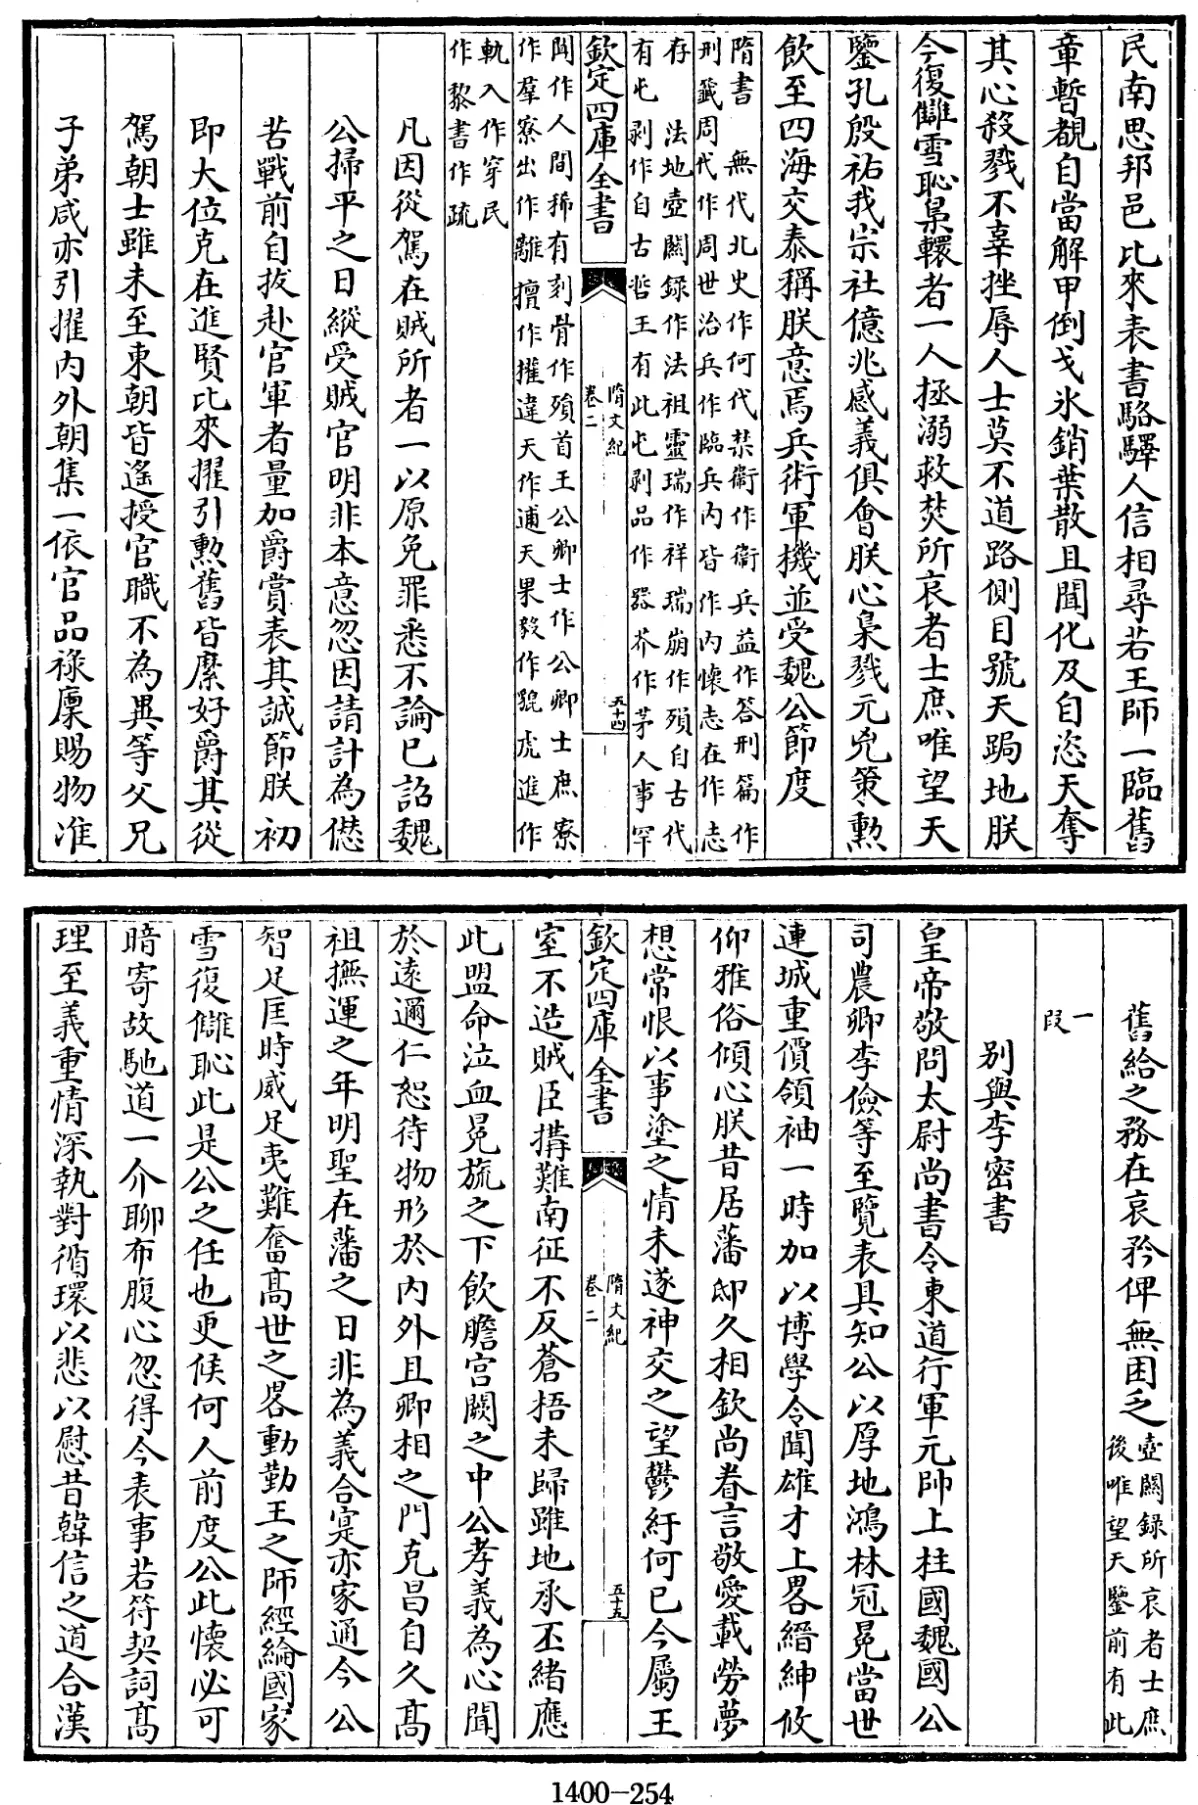 民南思邦邑比來表書駱驛人信相尋若王師一臨舊
章暫覩自當解甲倒戈氷銷葉散且聞化及自恣天奪
其心殺戮不辜挫辱人士莫不道路側目號天跼地朕
今復讎雪恥梟轘者一人拯溺救焚所哀者士庶唯望天
鑒孔殷祐我宗社億兆感義俱會朕心梟戮元兇策勲
飲至四海交泰稱朕意焉兵術軍機並受魏公節度
隋書 無代北史作何代禁衛作衛兵益作答刑篇作
刑籖周代作周世治兵作臨兵内皆作内懷志在作志
存 法地壺關録作法祖靈瑞作祥瑞崩作殞自古代
有屯剥作自古哲王有此屯剥品作器芥作茅人事罕
欽定四庫全書
隋文紀
卷二
五十四
聞作人間稀有刻骨作殞首王公卿士作公卿士庶寮
作羣寮出作離擅作擁違天作逋天果毅作貔虎進作
軌入作穿民
作黎書作疏
凡因從駕在賊所者一以原免罪悉不論已詔魏
公掃平之日縱受賊官明非本意忽因請計為僁
若戰前自拔赴官軍者量加爵賞表其誠節朕初
即大位克在進賢比來擢引勲舊皆縻好爵其從
駕朝士雖未至東朝皆遙授官職不為異等父兄
子弟咸亦引擢内外朝集一依官品祿廩賜物准
舊給之務在哀矜俾無困乏
壺關録所哀者士庶
後唯望天鑒前有此
一
段
别與李密書
皇帝敬問太尉尚書令東道行軍元帥上柱國魏國公
司農卿李儉等至覽表具知公以厚地鴻林冠冕當世
連城重價領袖一時加以博學令聞雄才上畧縉紳攸
仰雅俗傾心朕昔居藩邸久相欽尚眷言敬愛載勞夢
想常恨以事塗之情未遂神交之望鬱紆何已今屬王
欽定四庫全書
隋文紀
卷二
五十五
室不造賊臣搆難南征不反蒼梧未歸雖地承丕緒應
此盟命泣血冕旒之下飲膽宫闕之中公孝義為心聞
於遠邇仁恕待物形於内外且卿相之門克昌自久髙
祖撫運之年明聖在藩之日非為義合寔亦家通今公
智足匡時威足夷難奮髙世之畧動勤王之師經綸國家
雪復讎恥此是公之任也更俟何人前度公此懷必可
暗寄故馳道一介聊布腹心忽得今表事若符契詞髙
理至義重情深執對循環以悲以慰昔韓信之道合漢
1400-254